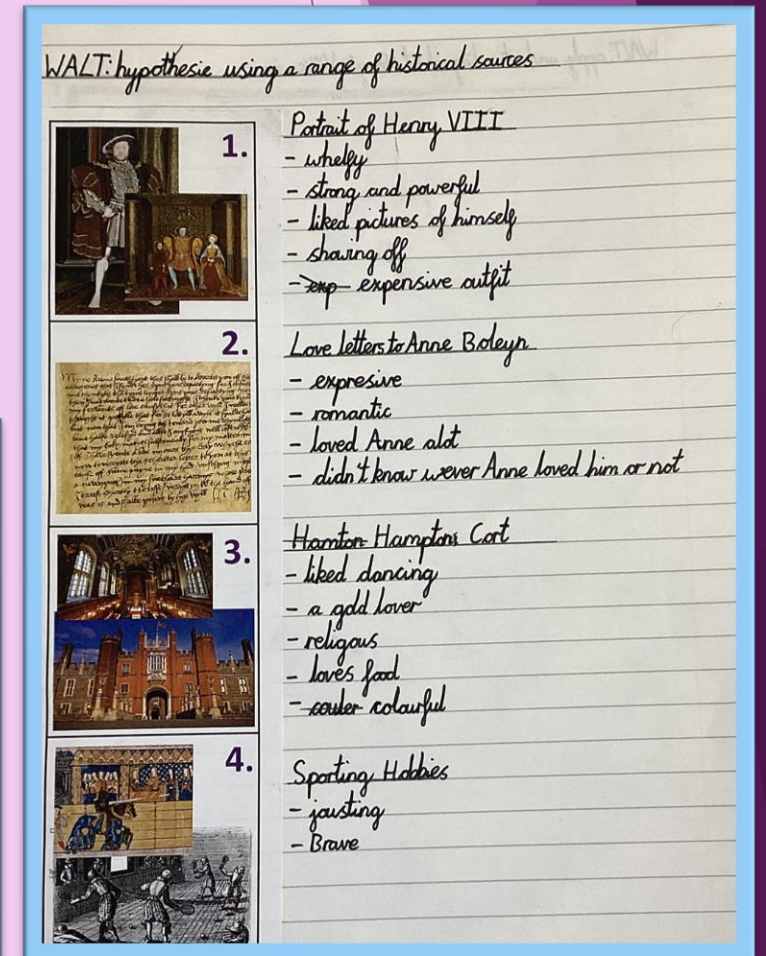 WALT: hypothesie using a range of historical sources
1.
Portrait of Henry VIII
- whelfy
- strong and powerful
- liked pictures of himself
- showing off
- exp expensive outfit
2.
Love letters to Anne Boleyn
- expresive
- romantic
- loved Anne alot
- didn't know wever Anne loved him or not
3.
Hamton Hamptons Cort
- liked dancing
- a gold lover
- religous
- loves food
- couler colourful
4.
Sporting Hobbies
- jousting
- Brave